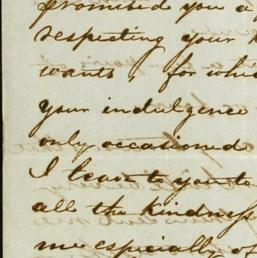 promised you a
respecting your
wants, for whic
your indulgence
only occasioned
I leave to you to
all the kindness
me especially of